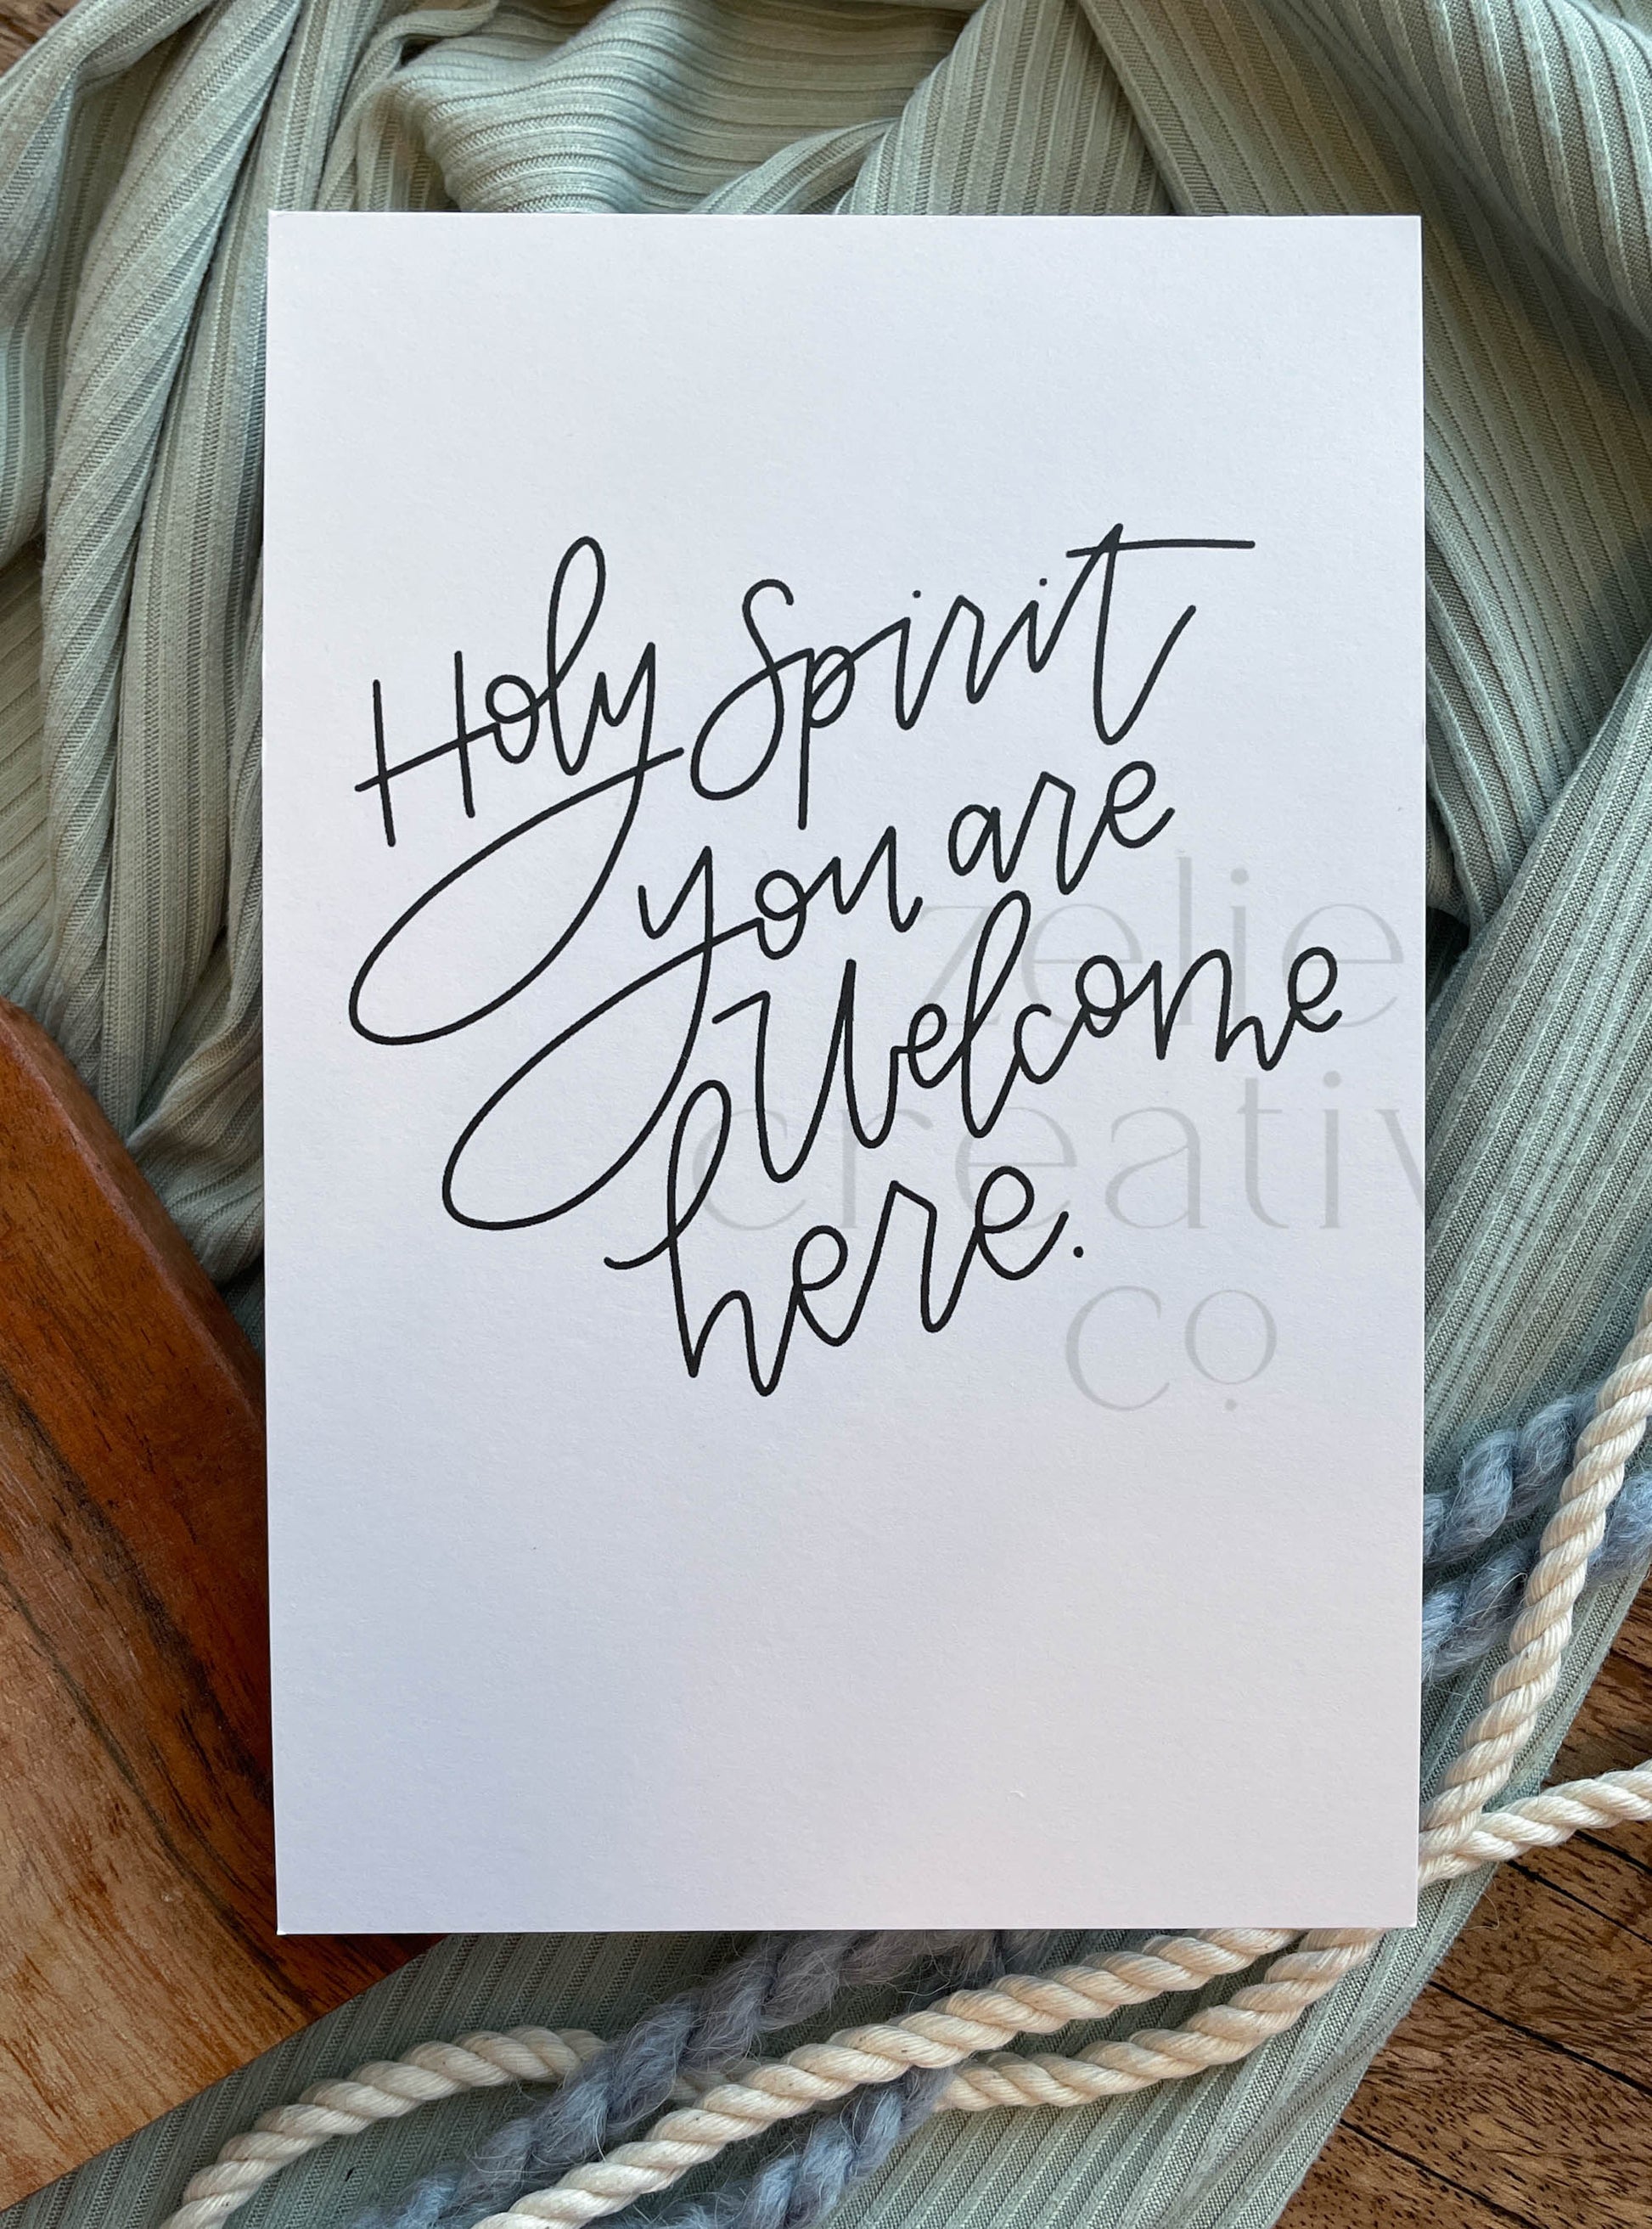 Holy Spirit
you are
Welcome
here.
zelie
creativ
co.